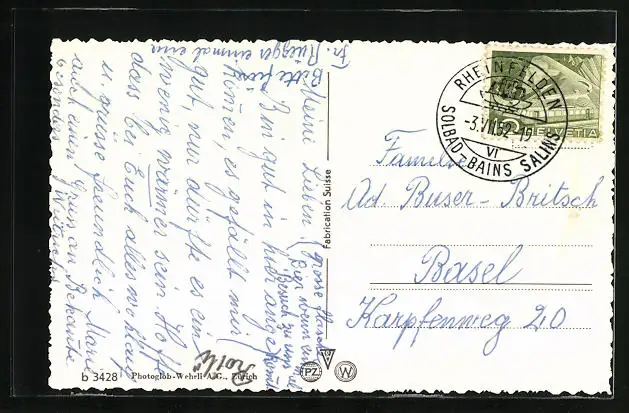 Meine Lieben!
Bin gut in hier angekommen, es gefällt mir
gut, nur dürfte es ein
wenig wärmer sein. Hoffe
dass bei Euch alles wohlauf
u. grüsse freundlich Marie
auch einen Gruss an Bekannte
besonders
Bitte
Fr. Rüegger einmal eine
Besuch zu
Rolli
Fabrication Suisse
RHEINFELDEN
-3.VII.52-19
VI
SOLBAD-BAINS SALINS
HELVETIA
Familie
Ad. Buser-Britsch
Basel
Karpfenweg 20
b 3428 Photoglob-Wehrli A.G., Zürich
PZ
W